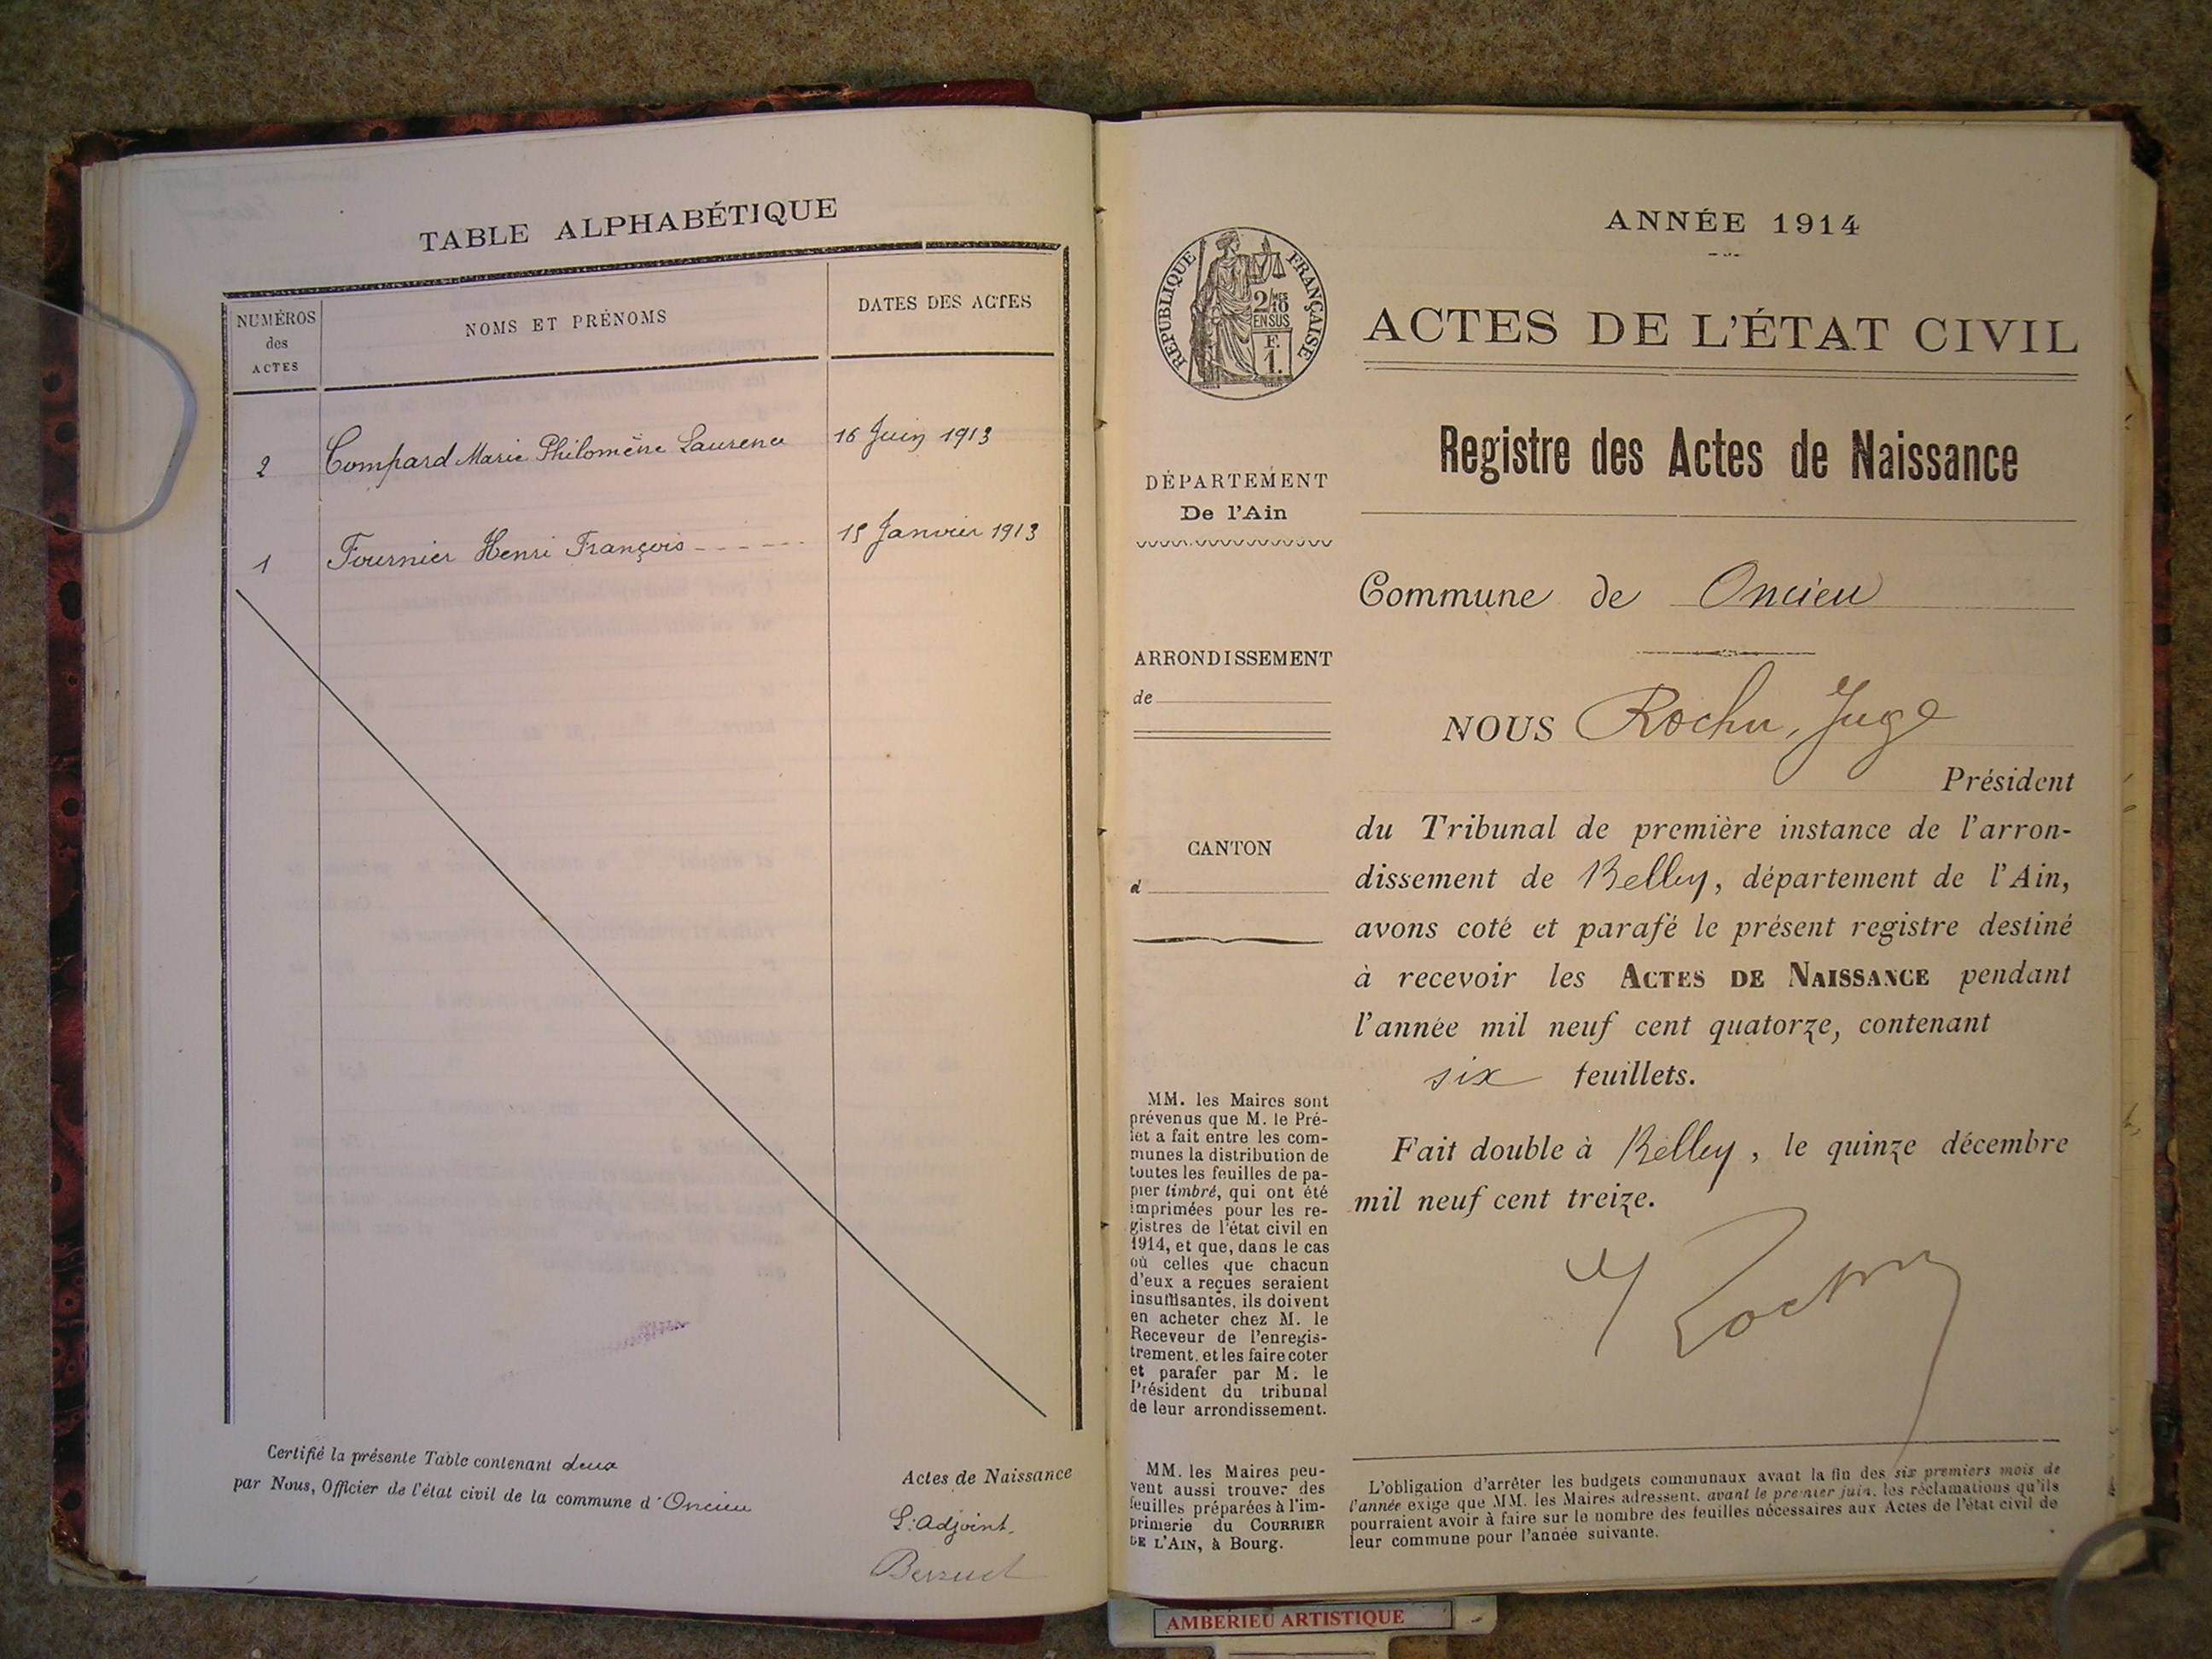 TABLE ALPHABÉTIQUE
NUMÉROS
des
ACTES
NOMS ET PRÉNOMS
DATES DES ACTES
2 Compard Marie Philomène Laurence 16 Juin 1913
1 Fournier Henri François - - - - - 15 Janvier 1913
Certifié la présente Table contenant deux Actes de Naissance
par Nous, Officier de l'état civil de la commune d'Oncieu
L'adjoint.
ANNÉE 1914
RÉPUBLIQUE FRANÇAISE
2/10MES
EN SUS
F.
1.
ACTES DE L'ÉTAT CIVIL
Registre des Actes de Naissance
DÉPARTEMENT
De l'Ain
Commune de Oncieu
ARRONDISSEMENT
de
CANTON
d
NOUS Rochu, Juge
Président
du Tribunal de première instance de l'arron-
dissement de Belley, département de l'Ain,
avons coté et parafé le présent registre destiné
à recevoir les ACTES DE NAISSANCE pendant
l'année mil neuf cent quatorze, contenant
six feuillets.
Fait double à Belley, le quinze décembre
mil neuf cent treize.
MM. les Maires sont
prévenus que M. le Pré-
fet a fait entre les com-
munes la distribution de
toutes les feuilles de pa-
pier timbré, qui ont été
imprimées pour les re-
gistres de l'état civil en
1914, et que, dans le cas
où celles que chacun
d'eux a reçues seraient
insuffisantes, ils doivent
en acheter chez M. le
Receveur de l'enregis-
trement, et les faire coter
et parafer par M. le
Président du tribunal
de leur arrondissement.
MM. les Maires peu-
vent aussi trouver des
feuilles préparées à l'im-
primerie du COURRIER
DE L'AIN, à Bourg.
L'obligation d'arrêter les budgets communaux avant la fin des six premiers mois de
l'année exige que MM. les Maires adressent, avant le premier juin, les réclamations qu'ils
pourraient avoir à faire sur le nombre des feuilles nécessaires aux Actes de l'état civil de
leur commune pour l'année suivante.
AMBERIEU ARTISTIQUE